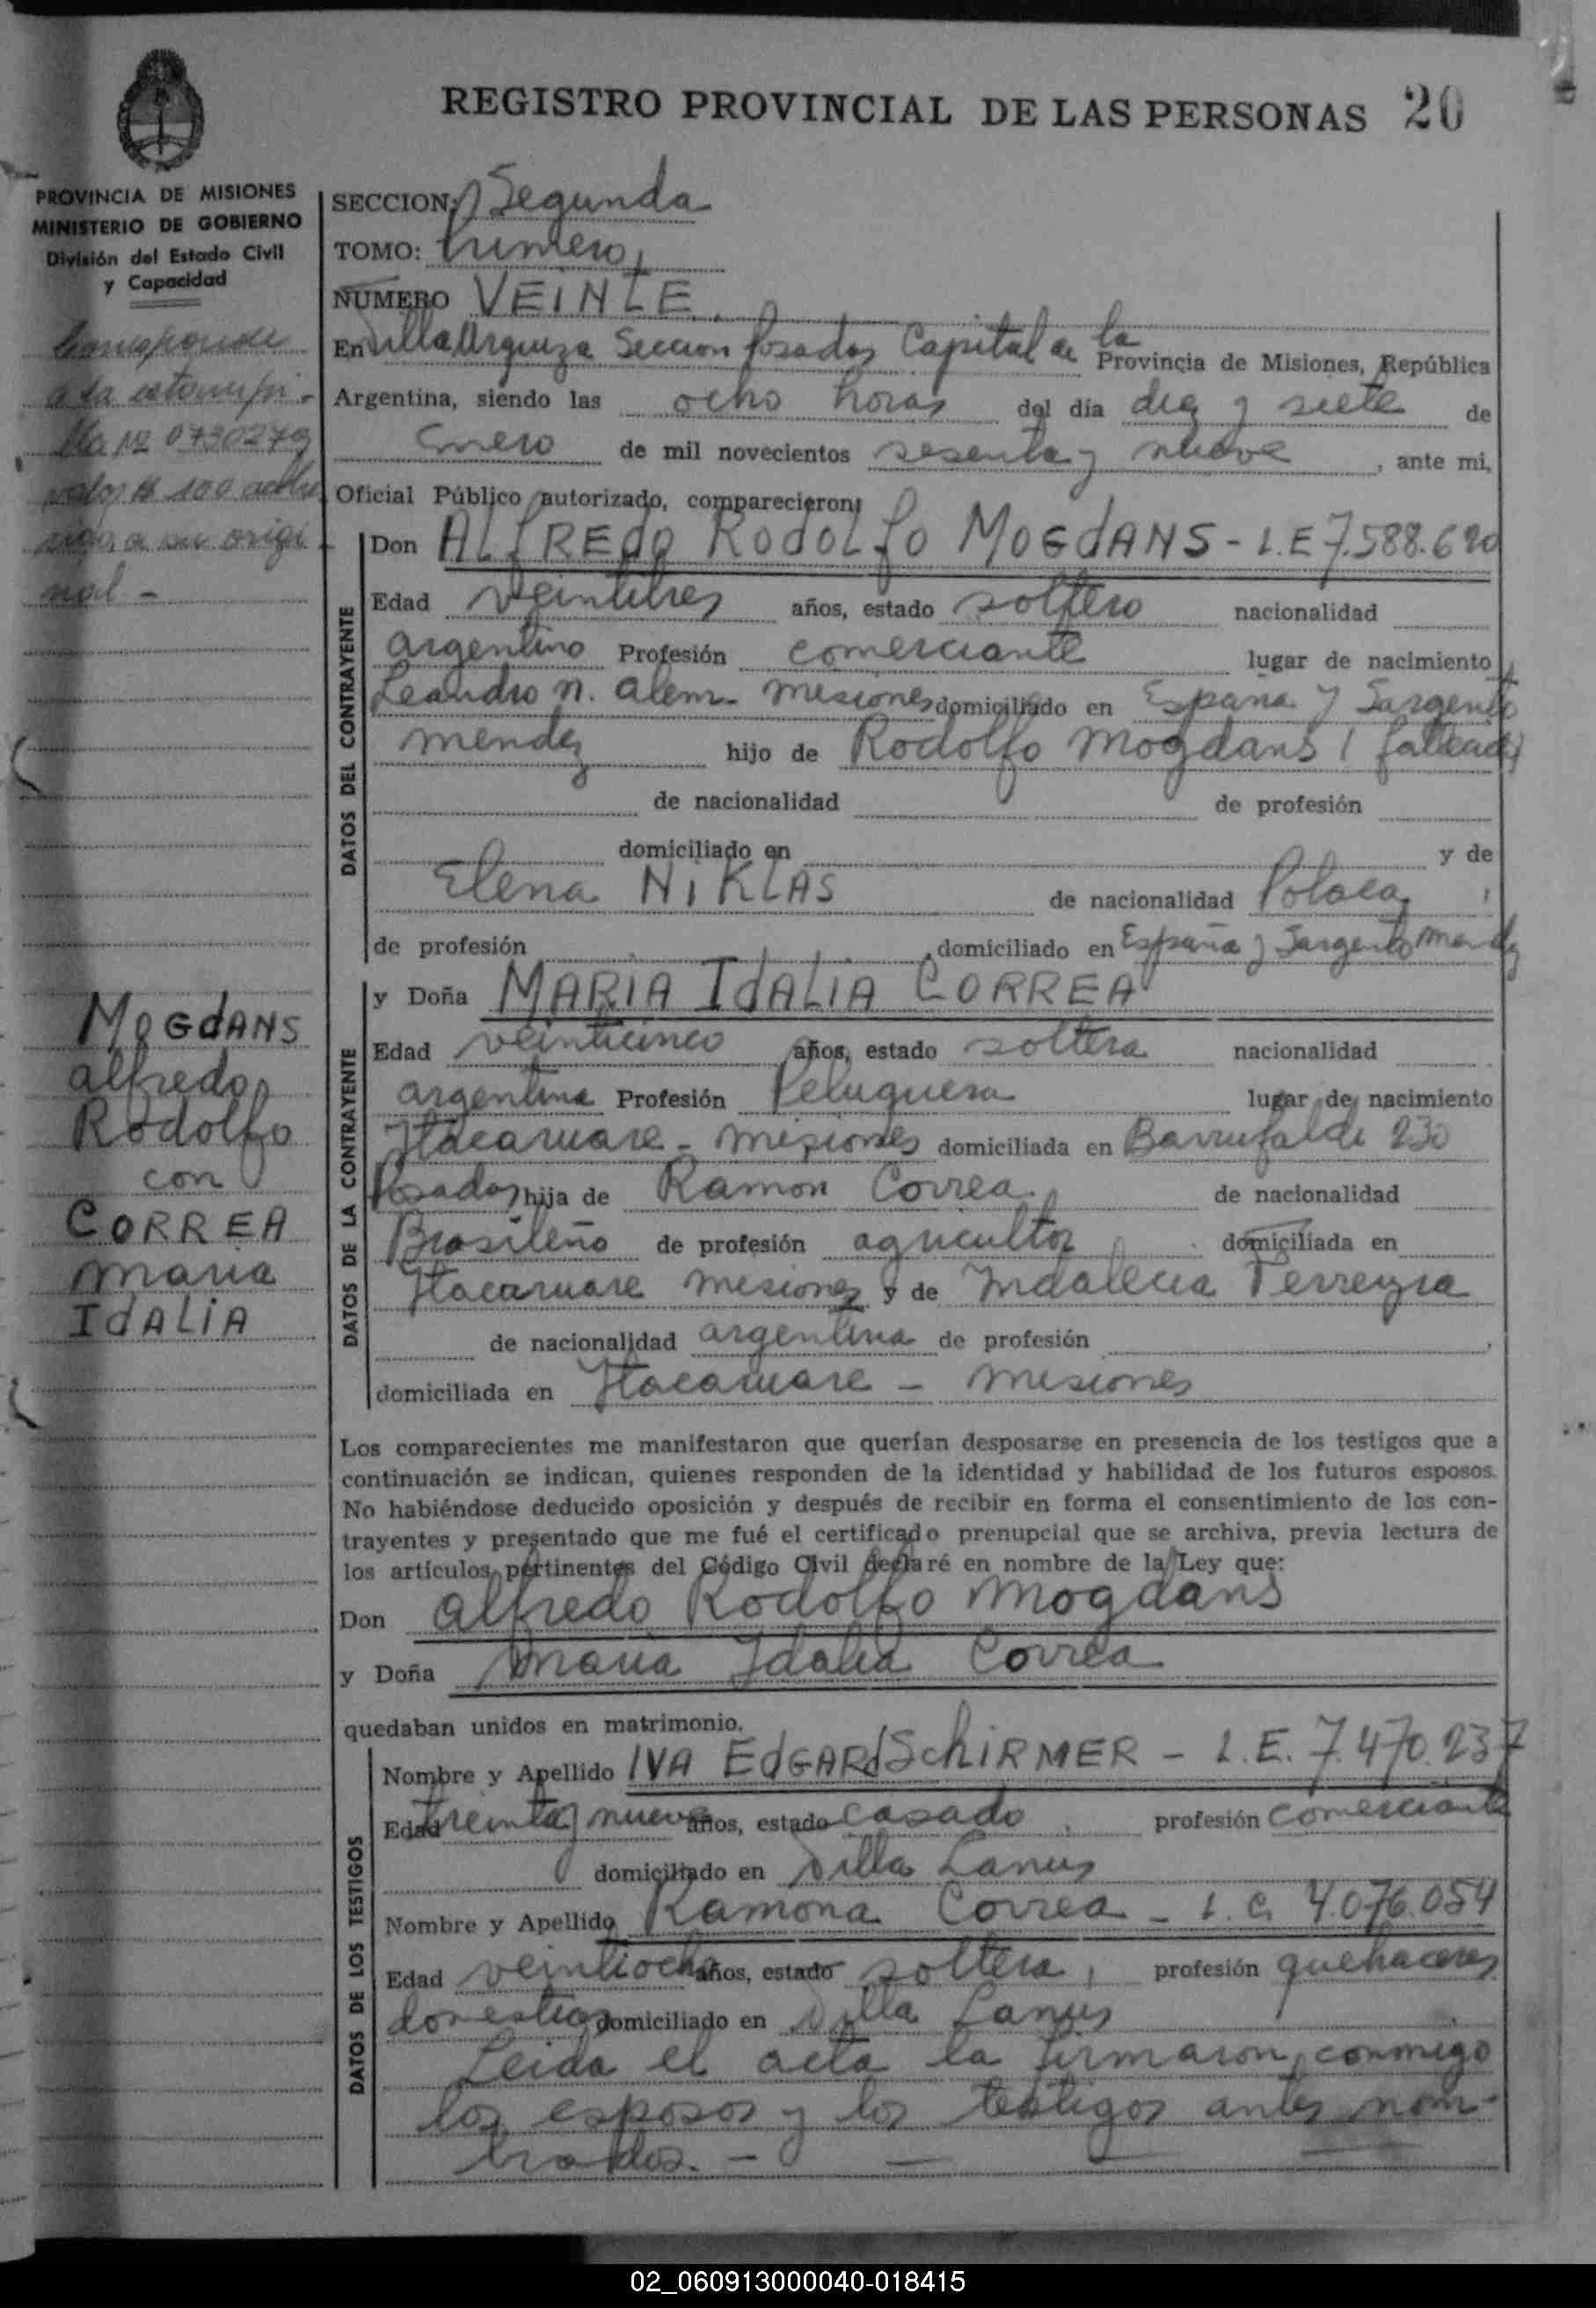 REGISTRO PROVINCIAL DE LAS PERSONAS 20
PROVINCIA DE MISIONES
MINISTERIO DE GOBIERNO
División del Estado Civil
y Capacidad
Corresponde
a la estampi-
lla Nº 0730279
valor $ 100 adhe
rida a su origi
nal -
Mogdans
Alfredo
Rodolfo
con
CORREA
Maria
IdALiA
SECCION: Segunda
TOMO: Primero
NUMERO VEINTE
En Villa Urquiza Seccion Posadas Capital de la Provincia de Misiones, República
Argentina, siendo las ocho horas del día diez y siete de
Enero de mil novecientos sesenta y nueve, ante mi,
Oficial Público autorizado, comparecieron:
DATOS DEL CONTRAYENTE
Don ALfREdo RodoLfo MOGdANS - L.E 7.588.620
Edad veintitres años, estado soltero nacionalidad
argentino Profesión comerciante lugar de nacimiento
Leandro N. Alem - Misiones domiciliado en España y Sargento
Mendez hijo de Rodolfo Mogdans (fallecido)
de nacionalidad de profesión
domiciliado en y de
Elena NiKLAS de nacionalidad Polaca,
de profesión , domiciliado en España y Sargento Mendez
DATOS DE LA CONTRAYENTE
y Doña MARIA IdALIA CORREA
Edad veinticinco años, estado soltera nacionalidad
argentina Profesión Peluquera lugar de nacimiento
Itacaruare - Misiones domiciliada en Barrufaldi 230
Posadas hija de Ramon Correa de nacionalidad
Brasileño de profesión agricultor domiciliada en
Itacaruare Misiones y de Indalecia Ferreyra
de nacionalidad argentina de profesión
domiciliada en Itacaruare - Misiones
Los comparecientes me manifestaron que querían desposarse en presencia de los testigos que a
continuación se indican, quienes responden de la identidad y habilidad de los futuros esposos.
No habiéndose deducido oposición y después de recibir en forma el consentimiento de los con-
trayentes y presentado que me fué el certificado prenupcial que se archiva, previa lectura de
los artículos pertinentes del Código Civil declaré en nombre de la Ley que:
Don Alfredo Rodolfo Mogdans
y Doña Maria Idalia Correa
quedaban unidos en matrimonio.
DATOS DE LOS TESTIGOS
Nombre y Apellido IVA EdGARd SchiRMER - L.E. 7.470.237
Edad treinta y nueve años, estado casado, profesión comerciante
domiciliado en Villa Lanus
Nombre y Apellido Ramona Correa - L.C. 4.076.054
Edad veintiocho años, estado soltera, profesión quehaceres
domesticos domiciliado en Villa Lanus
Leida el acta la firmaron conmigo
los esposos y los testigos antes nom-
brados. -
02_060913000040-018415